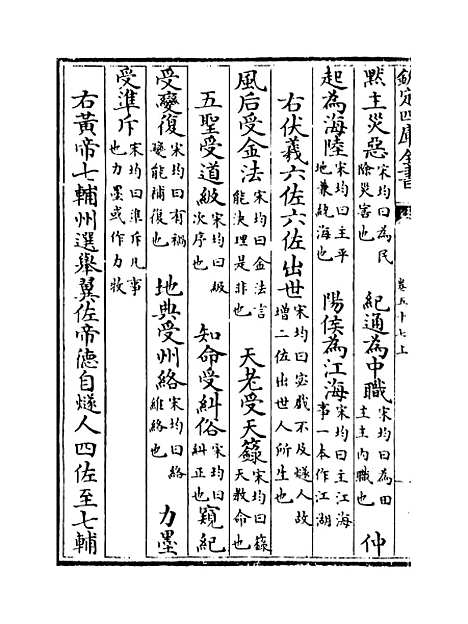 欽定四庫全書 卷五十七上
黙主災惡宋均曰為民除災害也 紀通為中職宋均曰為田主主內職也 仲
起為海陸宋均曰主平地兼統海也 陽侯為江海宋均曰主江海事一本作江湖
右伏羲六佐六佐出世宋均曰宓戲不及燧人故增二位出世人所生也
風后受金法宋均曰金法言能決理是非也 天老受天籙宋均曰籙天教命也
五聖受道級宋均曰級次序也 知命受糾俗宋均曰糾正也 窺紀
受變復宋均曰有禍變能補復也 地典受州絡宋均曰絡維絡也 力墨
受準斥宋均曰準斥凡事也力墨或作力牧
右黃帝七輔州選舉翼佐帝德自燧人四佐至七輔